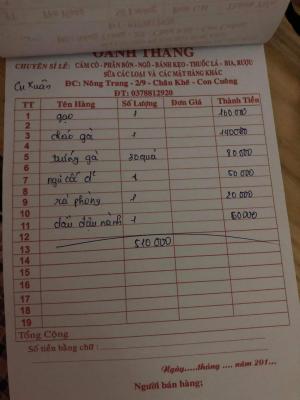 OANH THẮNG
CHUYÊN SỈ LẺ: CÁM CÒ - PHÂN BÓN - NGÔ - BÁNH KẸO - THUỐC LÁ - BIA, RƯỢU
SỮA CÁC LOẠI VÀ CÁC MẶT HÀNG KHÁC
Cụ Xuân
ĐC: Nông Trang - 2/9 - Châu Khê - Con Cuông
ĐT: 0378812920
TT Tên Hàng Số Lượng Đơn Giá Thành Tiền
1 gạo 1 160 000
2
3 cháo gà 1 140 000
4
5 trứng gà 30 quả 80 000
6
7 ngũ cốc 1 50 000
8
9 xà phòng 1 20 000
10
11 dầu đậu nành 1 60 000
12
13 510 000
14
15
16
17
18
19
Tổng Cộng
Số tiền bằng chữ :
Ngày.....tháng .... năm 201...
Người bán hàng: